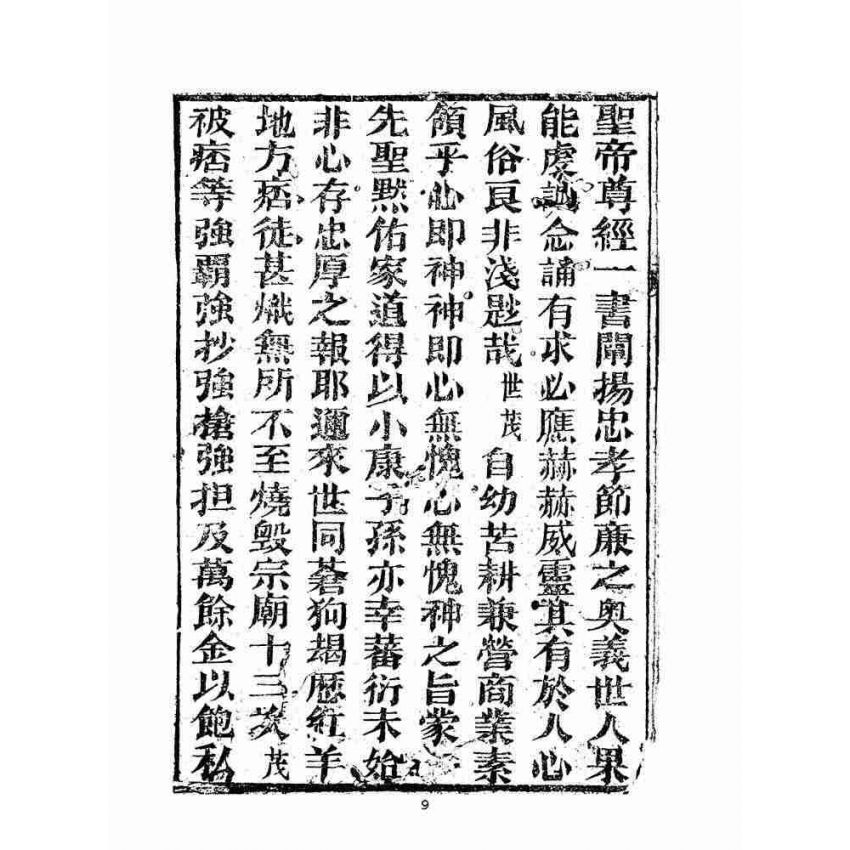 聖帝尊經一書闡揚忠孝節廉之奧義世人果
能虔誠念誦有求必應赫赫威靈其有於人心
風俗良非淺尠哉世茂自幼苦耕兼營商業素
領乎心即神神即心無愧心無愧神之旨蒙
先聖默佑家道得以小康子孫亦幸蕃衍未始
非心存忠厚之報耶邇來世同蒼狗刼歷紅羊
地方痞徒甚熾無所不至燒毀宗廟十三次茂
被痞等強霸強抄強搶強担及萬餘金以飽私
9